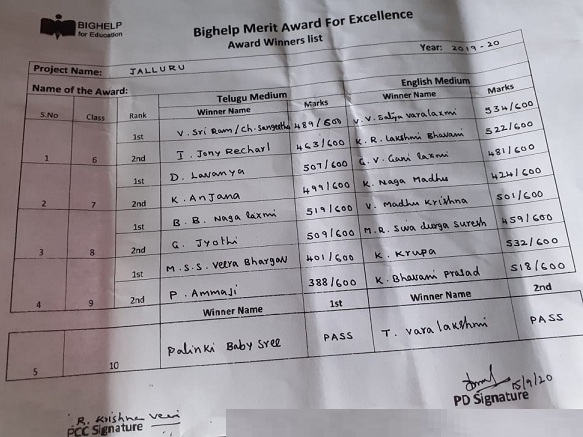 BIGHELP
for Education
Bighelp Merit Award For Excellence
Award Winners list
Year: 2019-20
Project Name: JALLURU
Name of the Award:
Telugu Medium English Medium
S.No Class Rank Winner Name Marks Winner Name Marks
1 6 1st V. Sri Ram/ch. Sangeetha 489/600 V. V. Satya varalaxmi 534/600
2nd T. Jony Recharl 463/600 K. R. Lakshmi Bhavani 522/600
2 7 1st D. Lavanya 507/600 G. V. Gani laxmi 481/600
2nd K. Anjana 499/600 K. Naga Madhu 424/600
3 8 1st B. B. Naga laxmi 519/600 V. Madhu Krishna 501/600
2nd G. Jyothi 509/600 M.R. Siva durga Suresh 459/600
4 9 1st M.S.S. Veera Bhargav 401/600 K. Krupa 532/600
2nd P. Ammaji 388/600 K. Bhavani Prasad 518/600
Winner Name 1st Winner Name 2nd
5 10 Palinki Baby Sree PASS T. Vara lakshmi PASS
R. Krishna Veni
PCC Signature
15/9/20
PD Signature